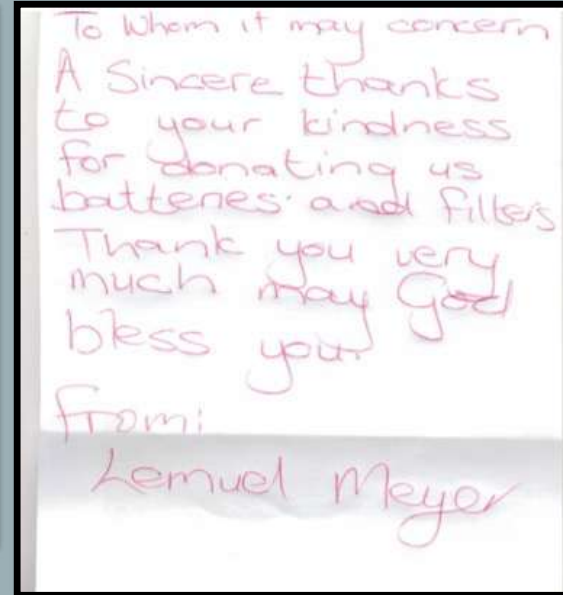 To Whom it may concern
A Sincere thanks
to your kindness
for donating us
batteries and filters
Thank you very
much may God
bless you.
from:
Lemuel Meyer